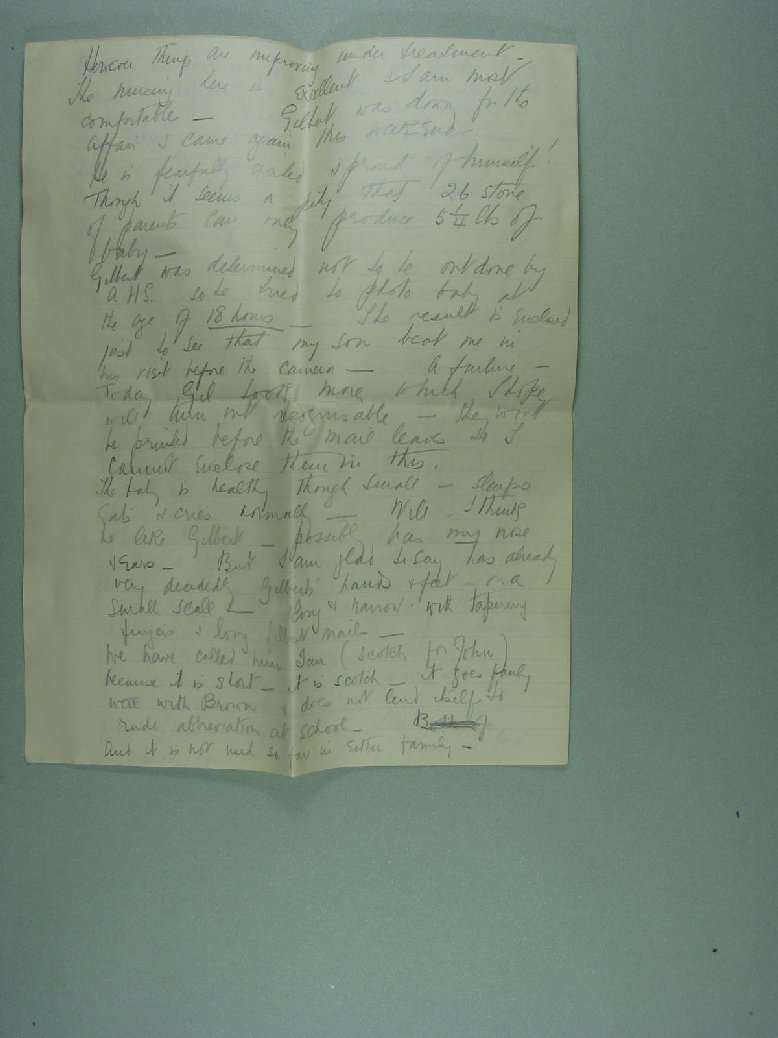 However things are improving under treatment -
The nursing here is excellent & I am most
comfortable - Gilbert was down for the
affair & came again this weekend -
he is fearfully & proud of himself!
Though it seems a pity that 26 stone
of parents can only produce 5 1/4 lbs of
baby -
Gilbert was determined not to be outdone by
A.H.S. so he tried to photo baby at
the age of 18 hours - The result is enclosed
just to see that my son beat me in
his visit before the camera - A failure -
Today Gil took more which I hope
will turn out recognisable - they wont
be printed before the mail leaves so I
cannot enclose them in this.
The baby is healthy though small - sleeps
eats & cries normally - Will I think
be like Gilbert - possibly has my nose
& ears - But I am glad to say has already
very decidedly Gilberts' hands & feet - on a
small scale - long & narrow with tapering
fingers & long filbert nails -
We have called him Ian (scotch for John)
because it is short - it is scotch - it goes fairly
well with Brown & does not lend itself to
rude abbreviation at school -
And it is not used so far in either family -